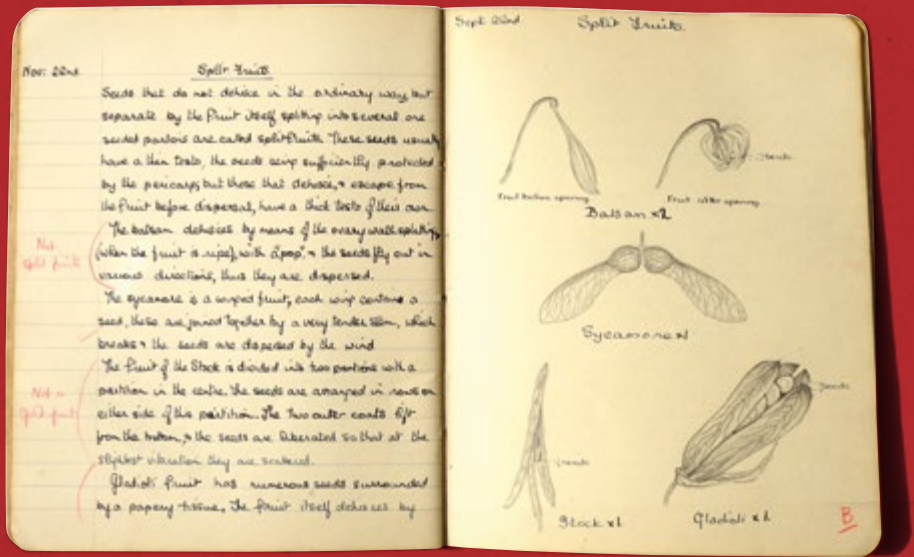 Nov: 22nd
Split Fruits
Seeds that do not dehisce in the ordinary way, but
separate by the fruit itself splitting into several one
seeded portions are called splitfruits. These seeds usually
have a thin testa, the seeds being sufficiently protected
by the pericarp, but those that dehisce, & escape from
the fruit before dispersal, have a thick testa of their own.
The balsam dehisces by means of the ovary wall splitting,
(when the fruit is ripe), with a "pop", & the seeds fly out in
various directions, thus they are dispersed.
The sycamore is a winged fruit, each wing contains a
seed, these are joined together by a very tender stem, which
breaks & the seeds are dispersed by the wind
The fruit of the Stock is divided into two portions with a
partition in the centre. The seeds are arranged in rows on
either side of this partition. The two outer coats lift
from the bottom, & the seeds are liberated so that at the
slightest vibration they are scattered.
Gladioli fruit has numerous seeds surrounded
by a papery tissue. The fruit itself dehisces by
Not
split fruits
Not a
split fruit
Sept 22nd
Split Fruits
Seeds
Fruit before opening
Fruit after opening
Balsam x2
Sycamore x1
Seeds
Seeds
Stock x1
Gladioli x2
B